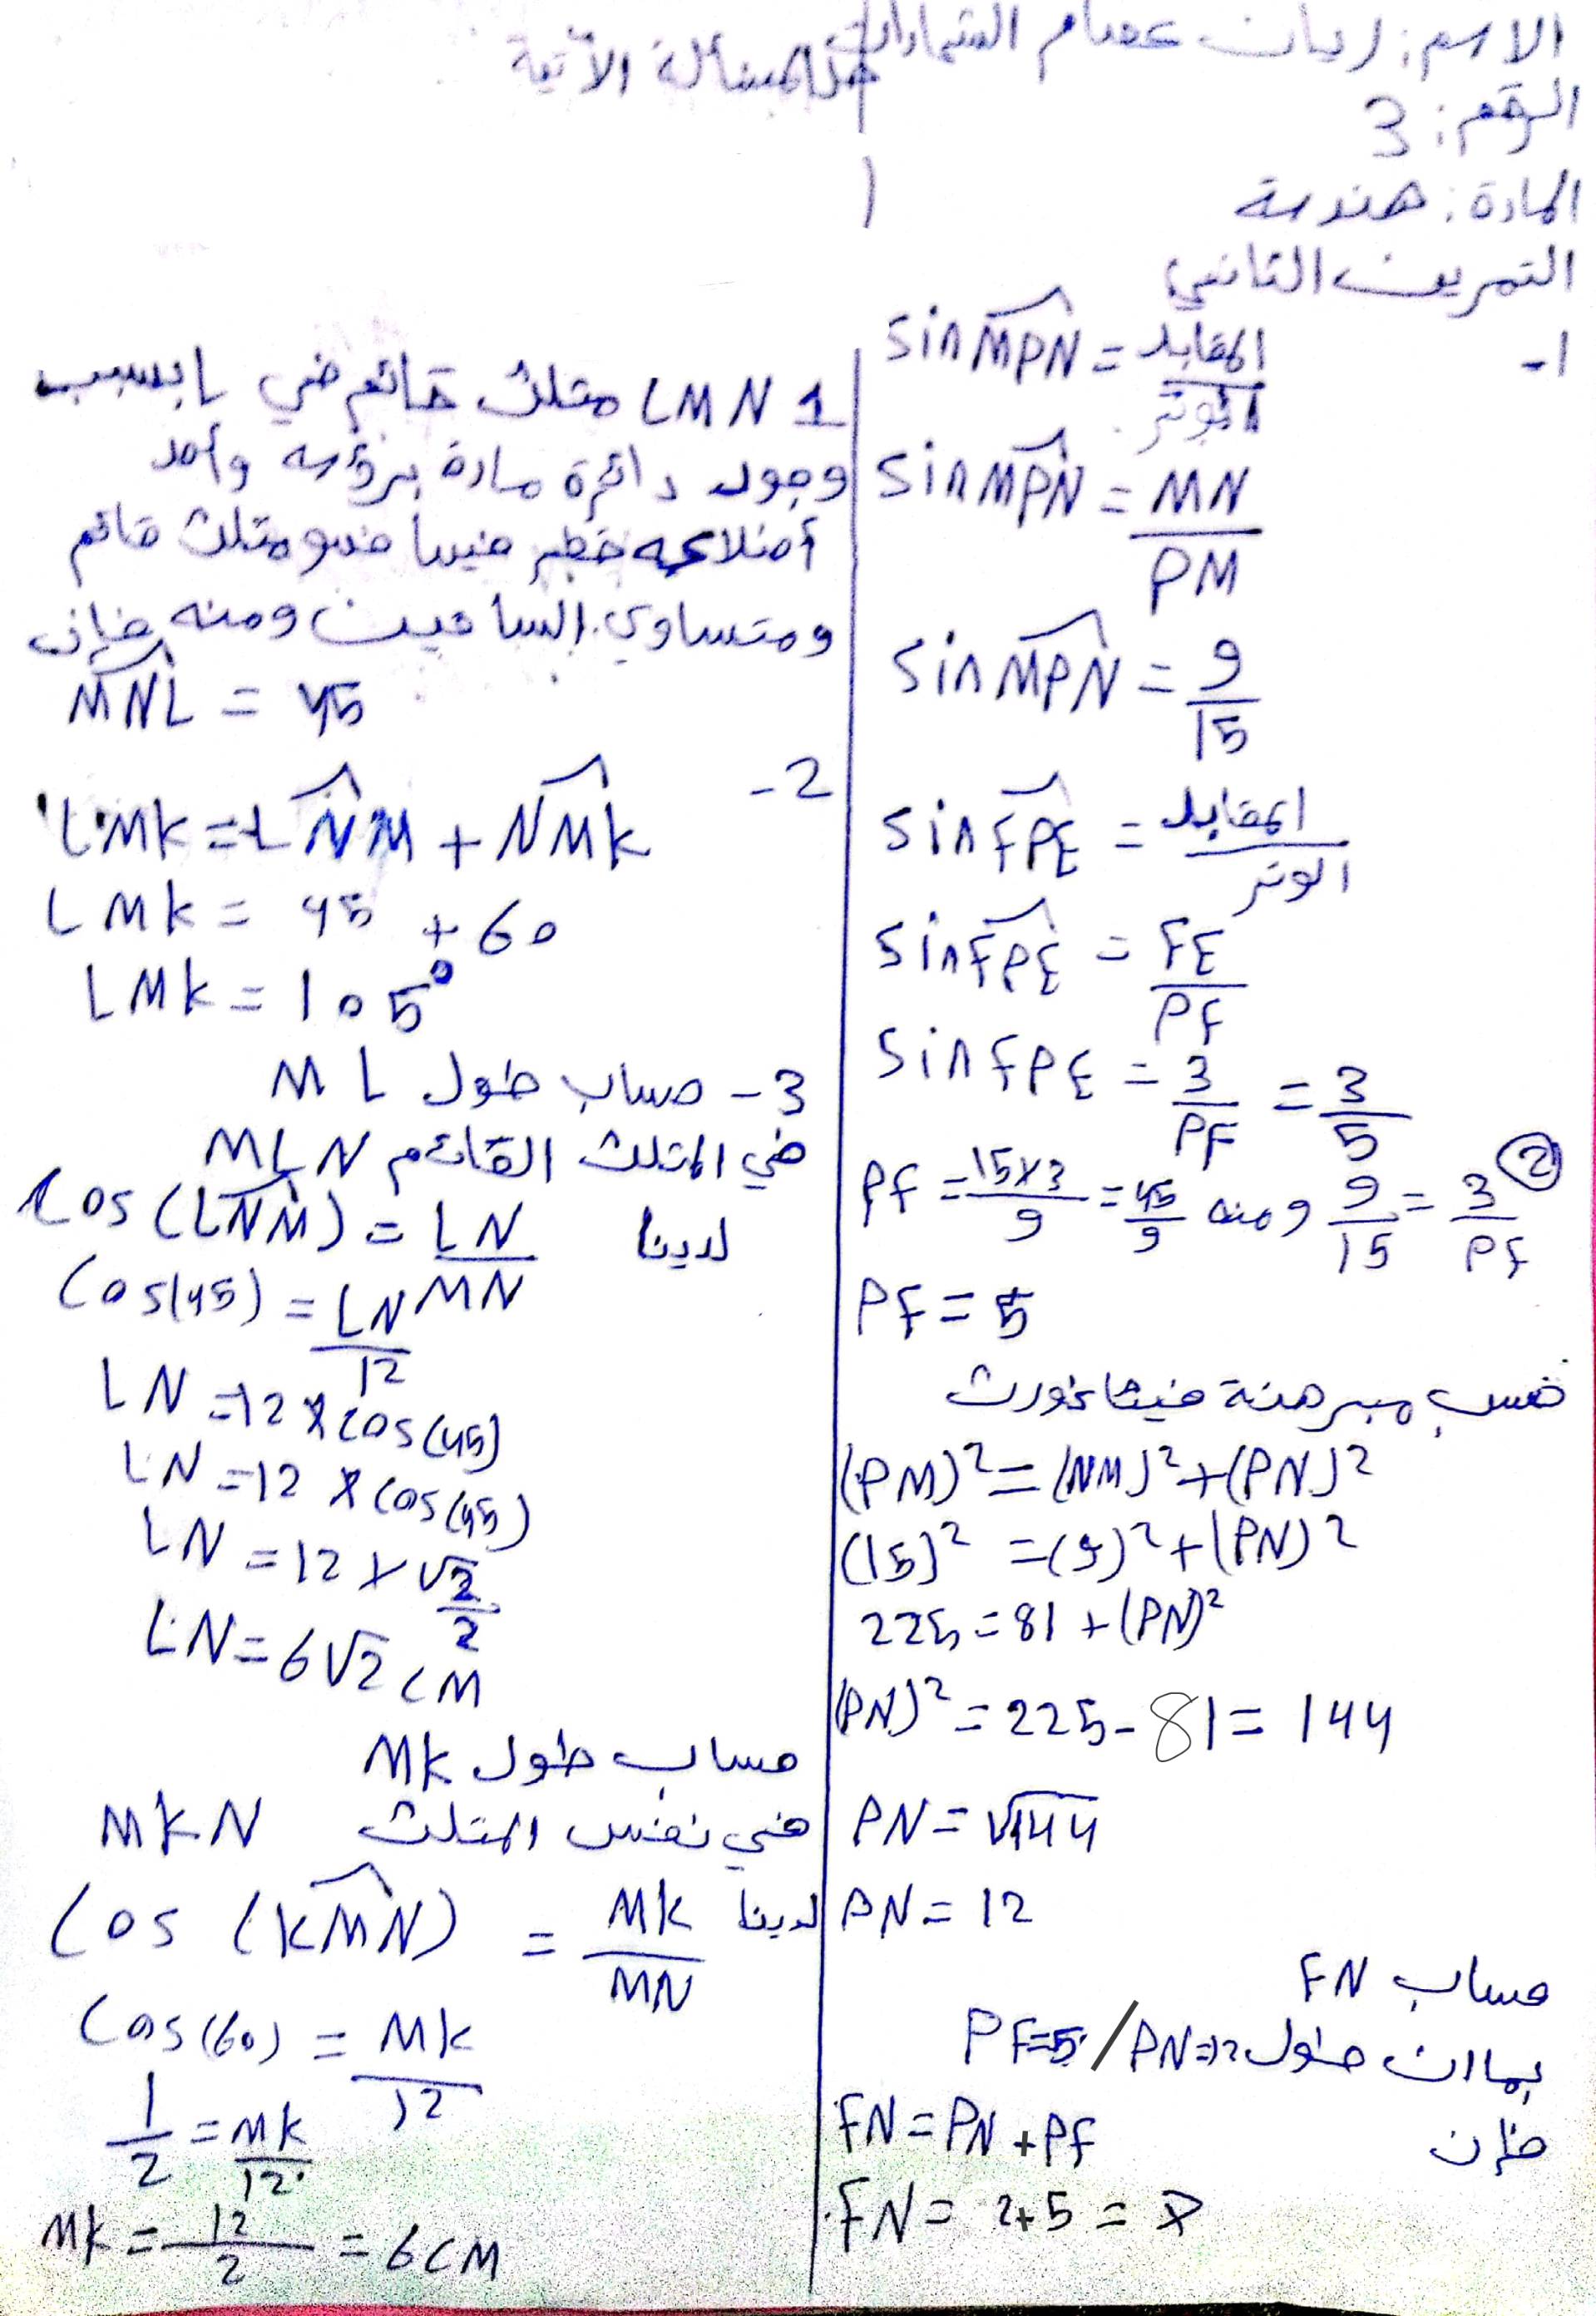 الاسم: ريان عصام الشمادات
الرقم: 3
المادة: هندسة
التمرين الثاني
1-
sin MPN = المقابل / الوتر
sin MPN = MN / PM
sin MPN = 9 / 15
sin FPE = المقابل / الوتر
sin FPE = FE / PF
sin FPE = 3 / PF = 3 / 5
② 3 / PF = 9 / 15 ومنه PF = 15×3 / 9 = 45 / 9
PF = 5
حسب مبرهنة فيثاغورث
(PM)² = (NM)² + (PN)²
(15)² = (9)² + (PN)²
225 = 81 + (PN)²
(PN)² = 225 - 81 = 144
PN = √144
PN = 12
حساب FN
بما ان طول PN=12 / PF=5
فإن
FN = PN + PF
FN = 2+5 = 7
حل المسألة الآتية
1
1 LMN مثلث قائم في L بسبب
وجود دائرة مارة برؤسه وأحد
أضلاعه قطر فيها فهو مثلث قائم
ومتساوي الساقين ومنه فإن
MNL = 45
2-
LMK = LNM + NMK
LMK = 45 + 60
LMK = 105°
3- حساب طول ML
في المثلث القائم MLN
لدينا cos (LNM) = LN / MN
Cos(45) = LN / 12
LN = 12 × cos(45)
LN = 12 × cos(45)
LN = 12 × √2 / 2
LN = 6√2 cM
حساب طول MK
في نفس المثلث MKN
لدينا Cos (KMN) = MK / MN
Cos(60) = MK / 12
1 / 2 = MK / 12
MK = 12 / 2 = 6 cM